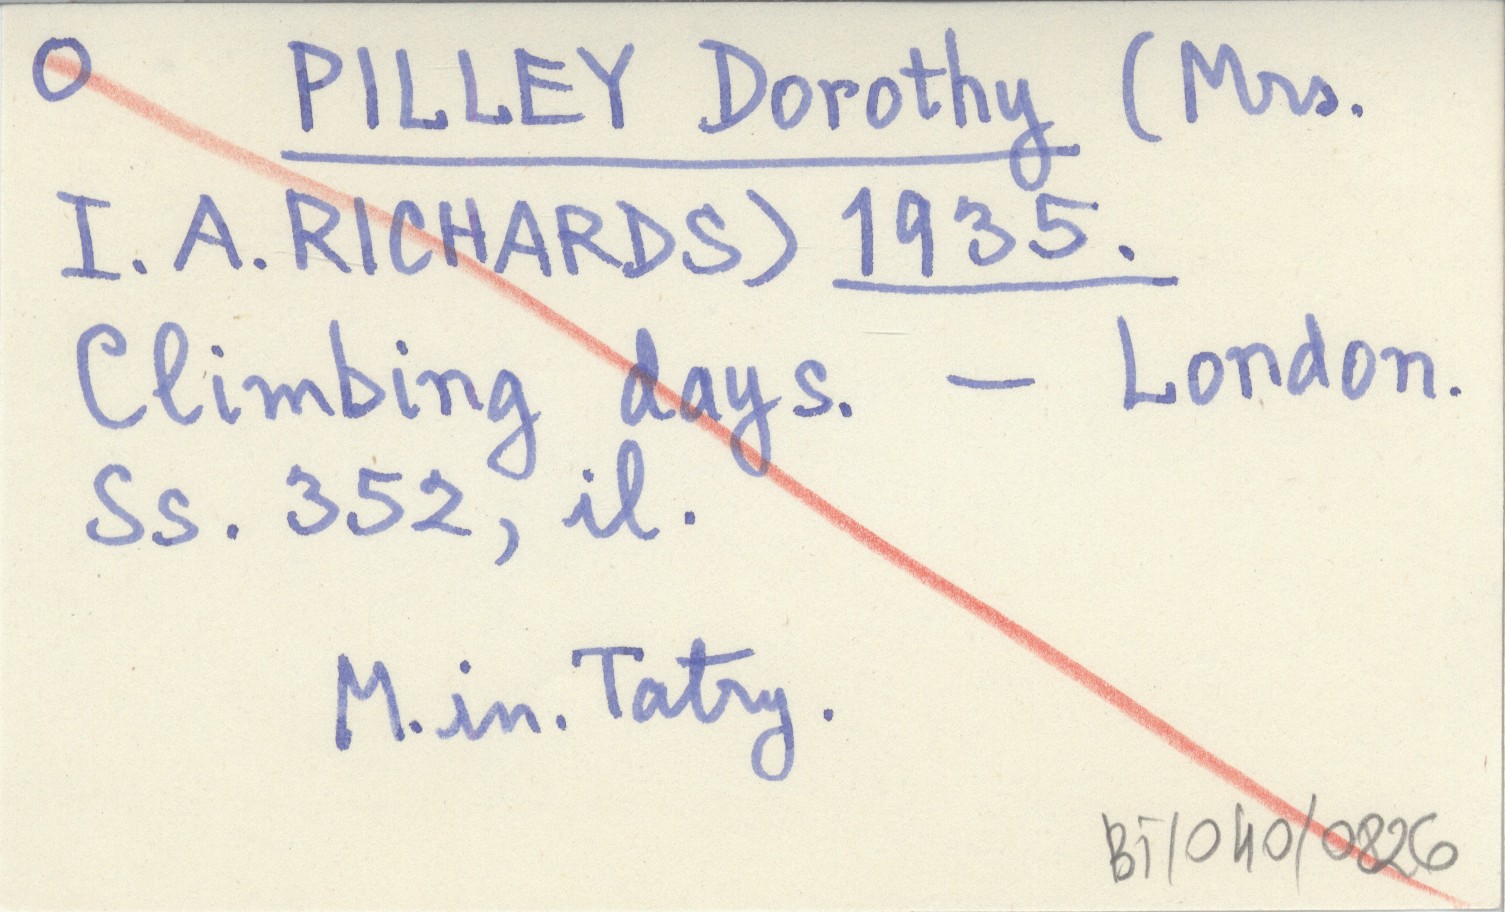 O PILLEY Dorothy (Mrs.
I. A. RICHARDS) 1935.
Climbing days. — London.
Ss. 352, il.
M. in. Tatry.
BT/040/0826